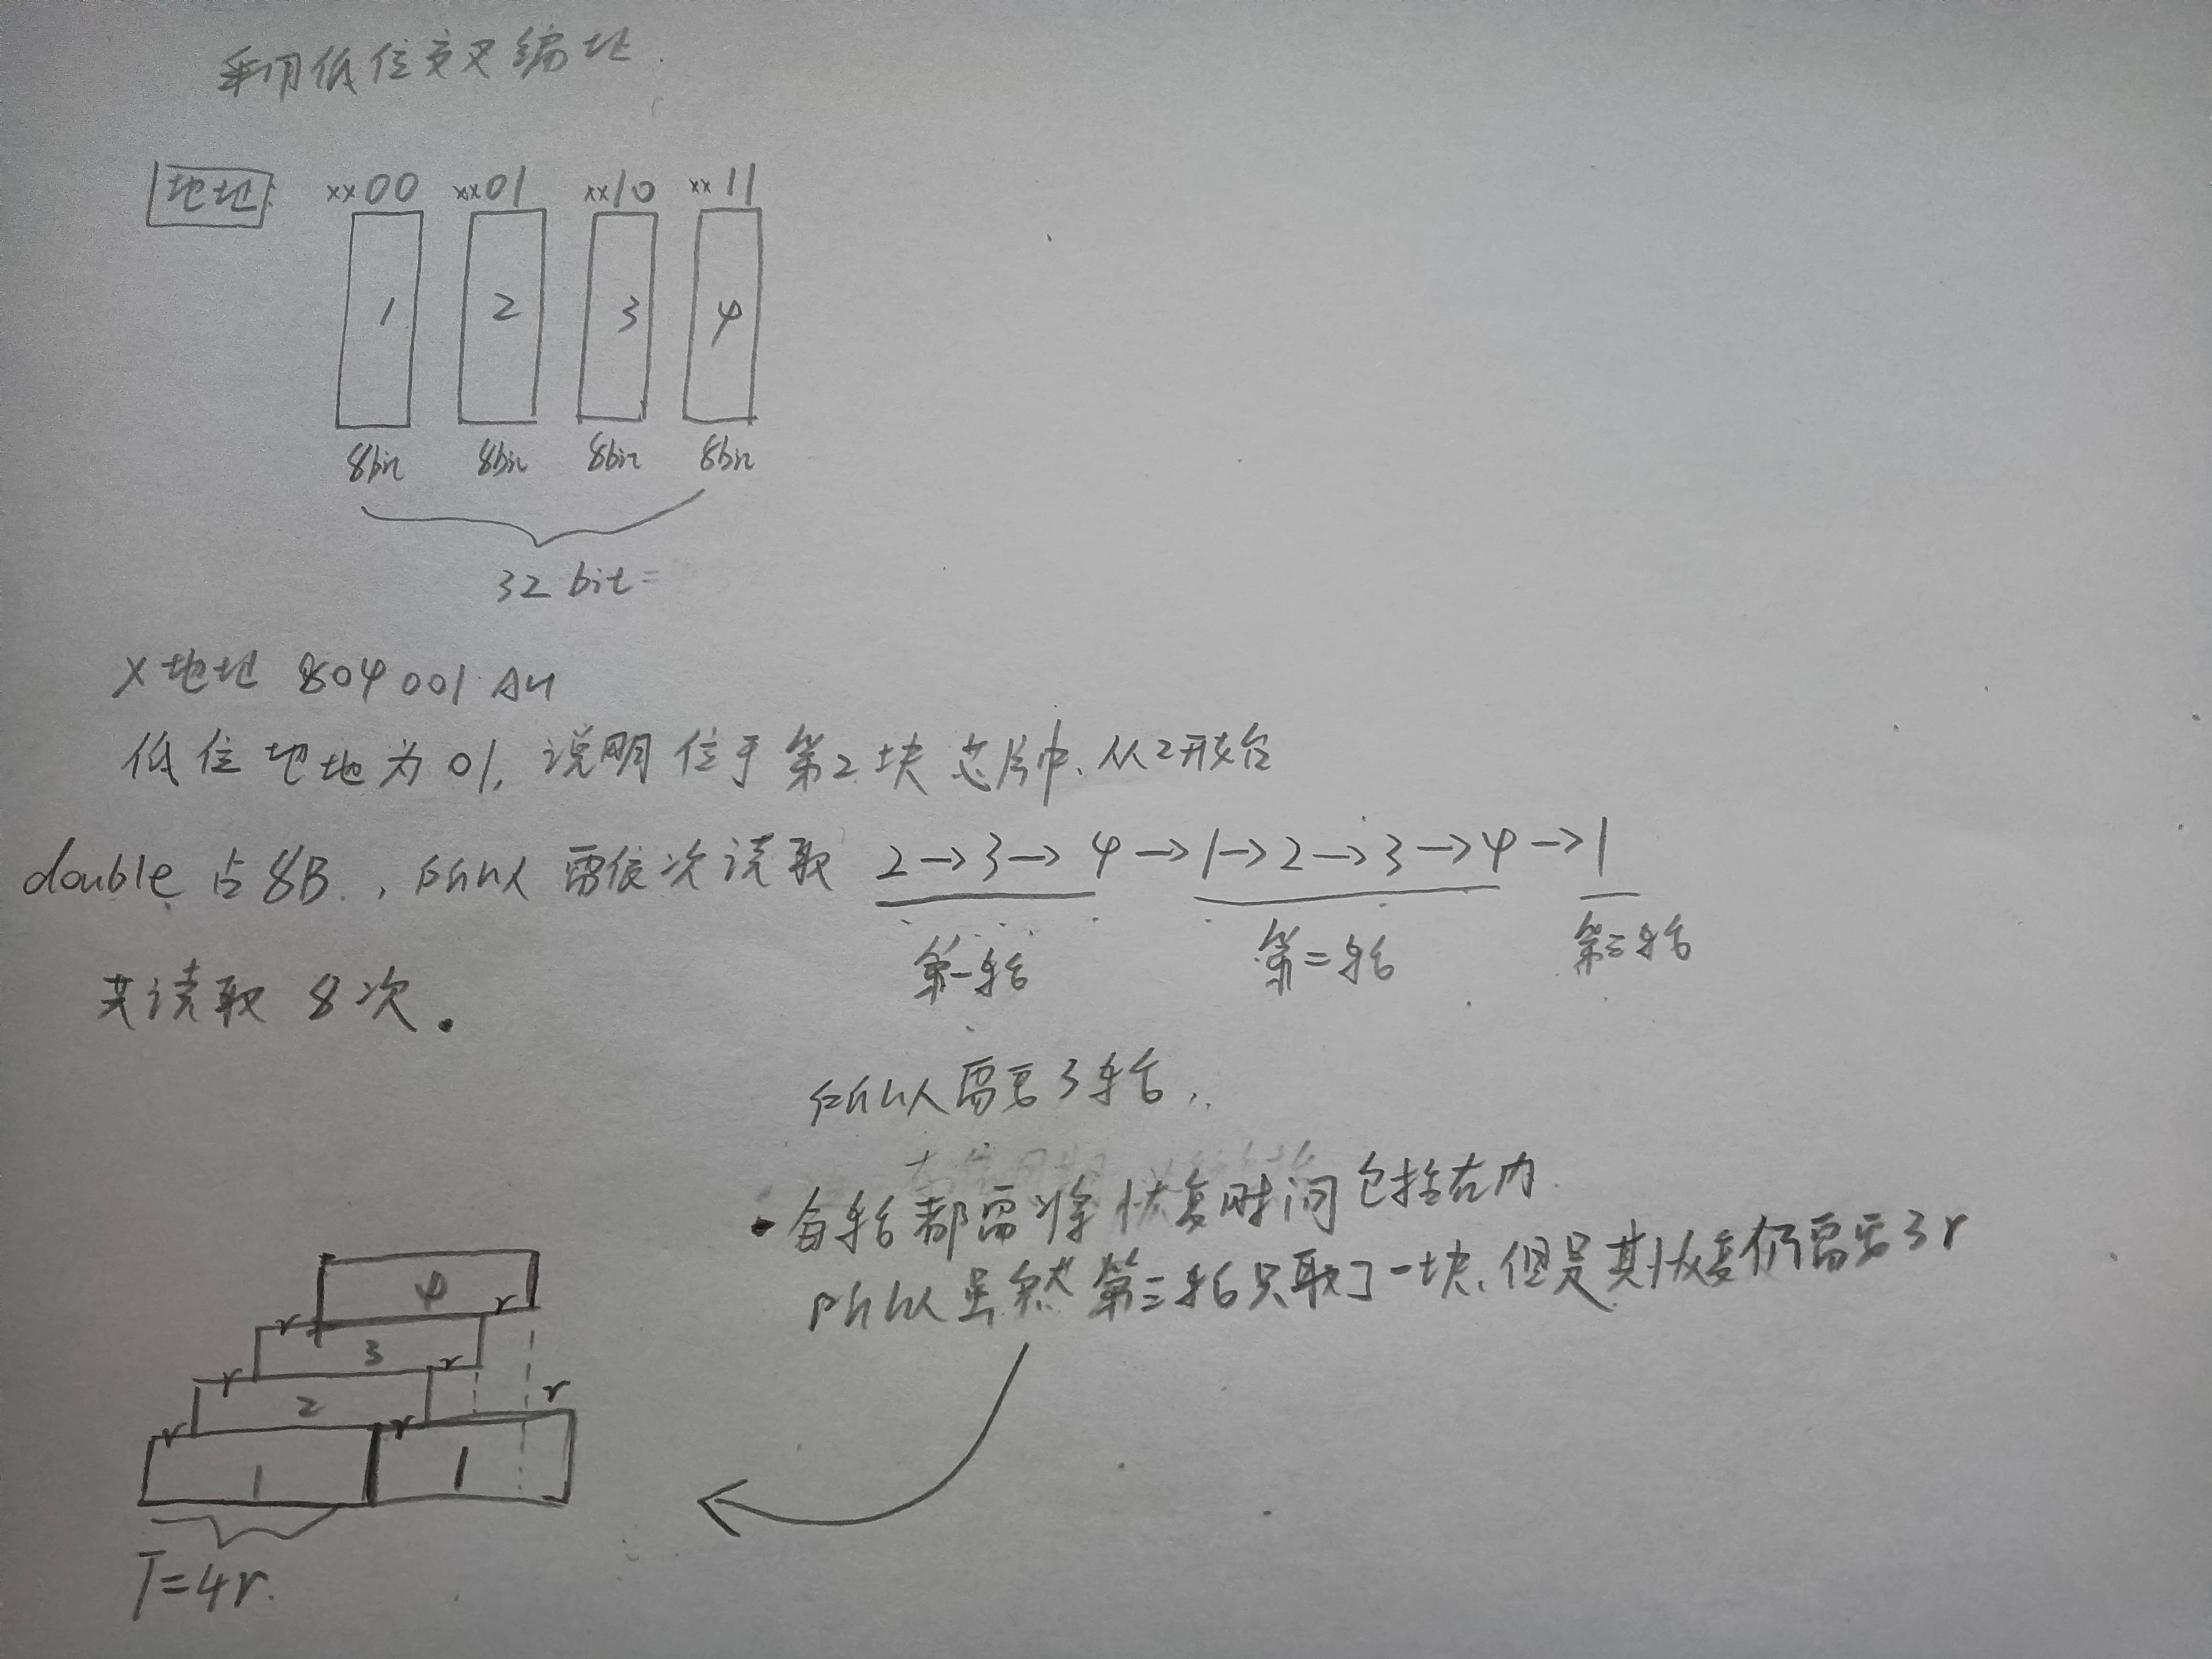 采用低位交叉编址.
地址: xx00 xx01 xx10 xx11
1 2 3 4
8bit 8bit 8bit 8bit
32 bit
x地址 804 001 AH
低位地址为01, 说明位于第2块芯片中, 从2开始
double 占8B, 所以需依次读取 2→3→4→1→2→3→4→1
第一轮 第二轮 第三轮
共读取 8次.
所以需要3轮,
• 每轮都需将恢复时间包括在内
所以虽然第三轮只取了一块, 但是其恢复仍需要3r
4
r r
3
r r
2 r
r r
1 1
T=4r.